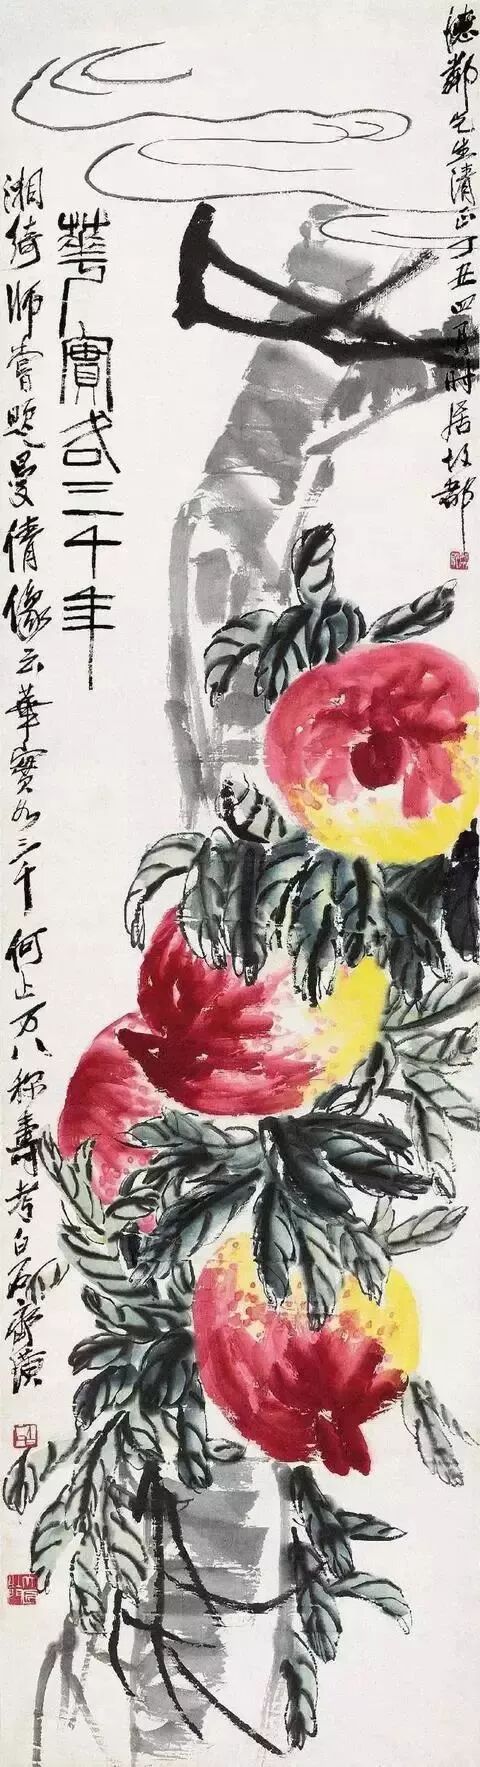 德鄰先生清正丁丑四月時居故都
華實各三千年
湘綺師嘗題曼倩像云華實各三千何止万八稱壽考白石齊璜